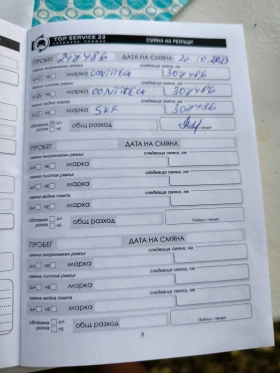 TOP SERVICE 22
СМЯНА НА РЕМЪЦИ
ПРОБЕГ 247486 ДАТА НА СМЯНА 20.10.2023
следваща смяна, км
марка CONTITECH 307486
следваща смяна, км
марка CONTITECH 307486
смяна водна помпа следваща смяна, км
марка SKF 307486
обтяжна ДА
ролка НЕ общ разход
ПРОБЕГ ДАТА НА СМЯНА
смяна ангренажен ремък следваща смяна, км
ДА НЕ марка
смяна пистов ремък следваща смяна, км
ДА НЕ марка
смяна водна помпа следваща смяна, км
ДА НЕ марка
обтяжна ДА
ролка НЕ общ разход
Подпис / печат
ПРОБЕГ ДАТА НА СМЯНА
смяна ангренажен ремък следваща смяна, км
ДА НЕ марка
смяна пистов ремък следваща смяна, км
ДА НЕ марка
смяна водна помпа следваща смяна, км
ДА НЕ марка
обтяжна ДА
ролка НЕ общ разход
Подпис / печат
9